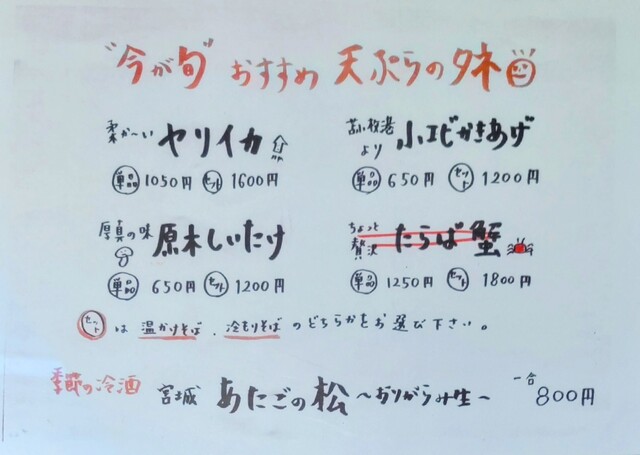 "今が旬" おすすめ 天ぷらのタネ
柔か〜い ヤリイカ
単品 1050円 セット 1600円
苫小牧港より 小エビかきあげ
単品 650円 セット 1200円
厚真の味 原木しいたけ
単品 650円 セット 1200円
ちょっと贅沢 たらば蟹
単品 1250円 セット 1800円
セット は 温かけそば 、 冷もりそば のどちらかをお選び下さい。
季節の冷酒 宮城 あたごの松 〜おりがらみ生〜 一合 800円